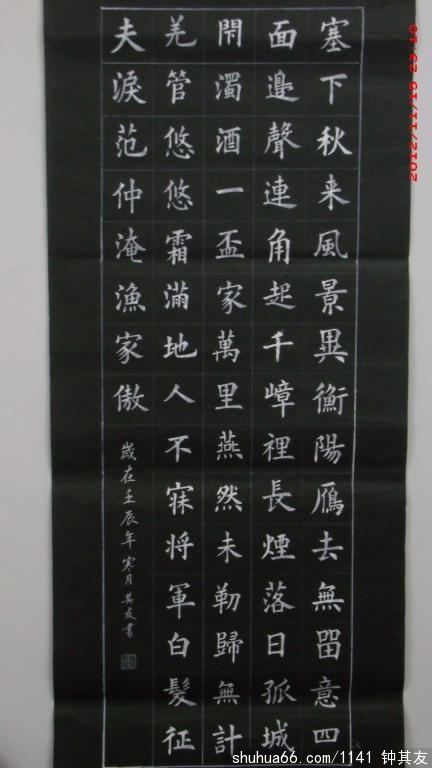 塞下秋来風景異衡陽鴈去無留意四
面邊聲連角起千嶂裡長煙落日孤城
閉濁酒一盃家萬里燕然未勒歸無計
羌管悠悠霜滿地人不寐将軍白髮征
夫淚范仲淹漁家傲
歲在壬辰年寒月其友書
shuhua66.com/1141 钟其友